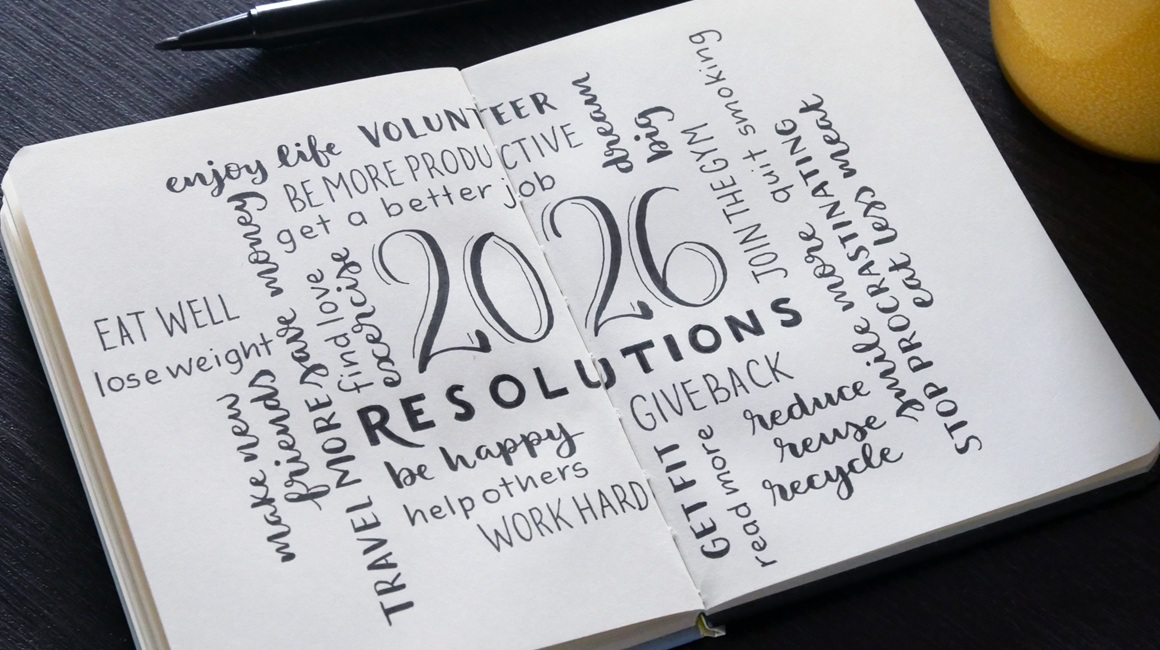 enjoy life
VOLUNTEER
BE MORE PRODUCTIVE
get a better job
dream
big
quit smoking
JOIN THE GYM
save money
find love
exercise
EAT WELL
lose weight
2026
RESOLUTIONS
make new
friends
TRAVEL MORE
be happy
help others
WORK HARD
GIVE BACK
GET FIT
read more
reduce
reuse
recycle
smile more
STOP PROCRASTINATING
eat less meat